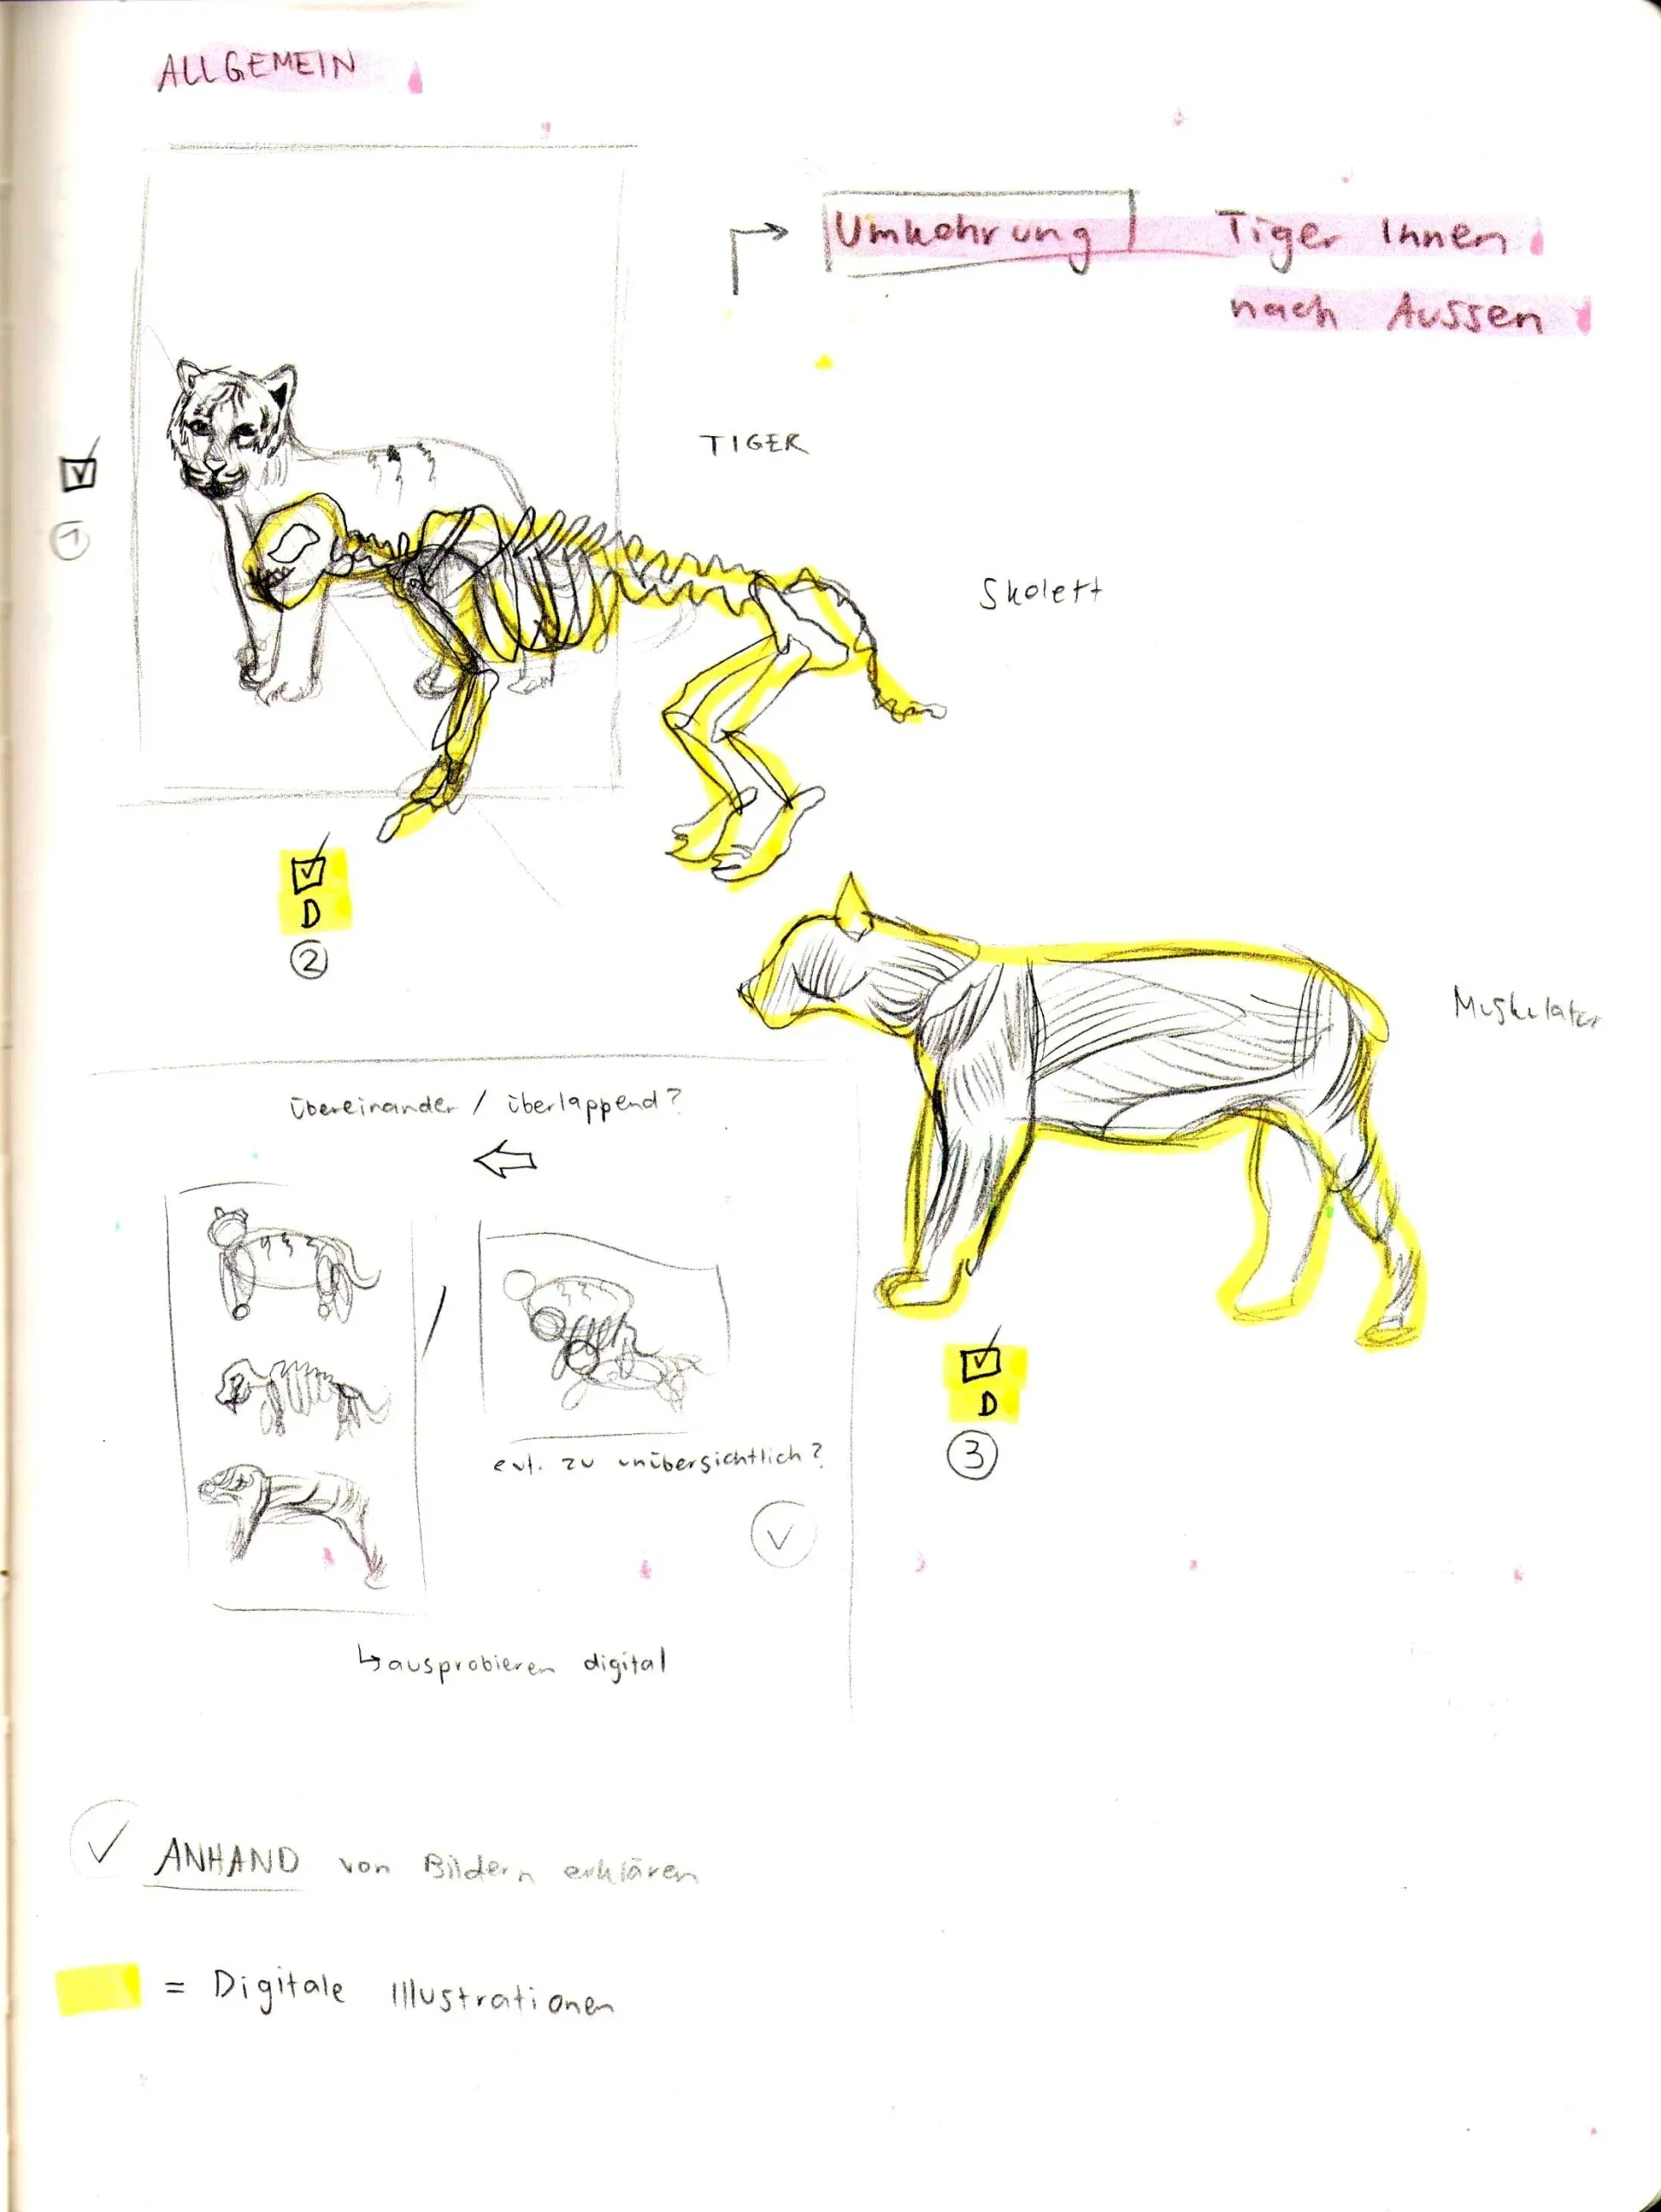 ALLGEMEIN
Umkehrung Tiger Innen
nach Aussen
TIGER
1
Skelett
D
2
Muskulatur
übereinander / überlappend?
evt. zu unübersichtlich?
D
3
↳ ausprobieren digital
ANHAND von Bildern erklären
= Digitale Illustrationen